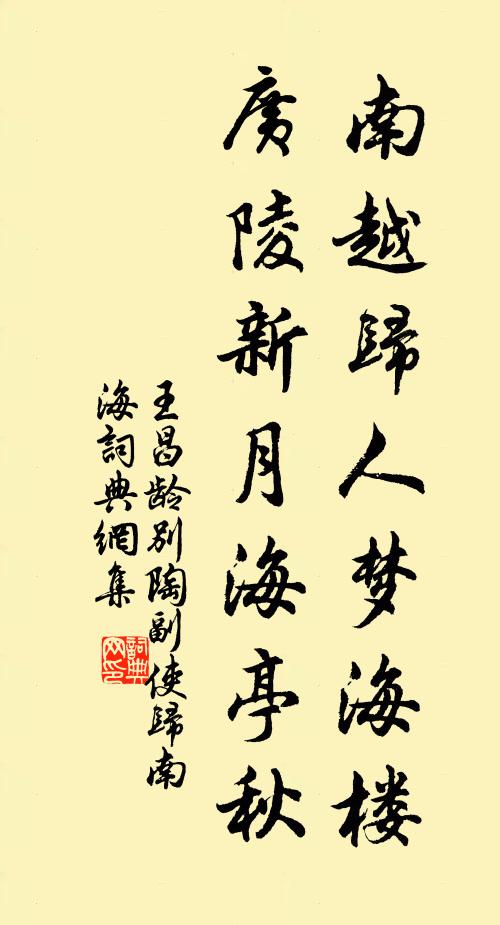 南越歸人梦海楼
廣陵新月海亭秋
王昌龄别陶副使歸南
海詞典網集
詞典
网印